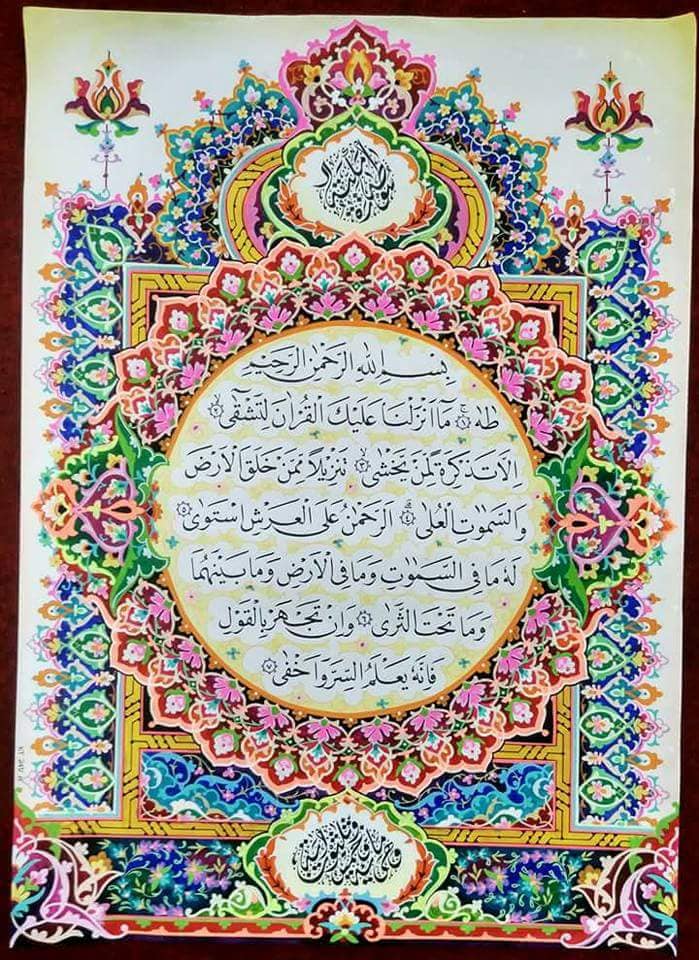 سورة طه
بِسْمِ اللهِ الرَّحْمٰنِ الرَّحِيْمِ
طٰهٰ ۚ ﴿١﴾ مَآ اَنْزَلْنَا عَلَيْكَ الْقُرْاٰنَ لِتَشْقٰىٓ ۙ ﴿٢﴾
اِلَّا تَذْكِرَةً لِّمَنْ يَّخْشٰى ۙ ﴿٣﴾ تَنْزِيْلًا مِّمَّنْ خَلَقَ الْاَرْضَ
وَالسَّمٰوٰتِ الْعُلٰى ۗ ﴿٤﴾ اَلرَّحْمٰنُ عَلَى الْعَرْشِ اسْتَوٰى ﴿٥﴾
لَهٗ مَا فِى السَّمٰوٰتِ وَمَا فِى الْاَرْضِ وَمَا بَيْنَهُمَا
وَمَا تَحْتَ الثَّرٰى ﴿٦﴾ وَاِنْ تَجْهَرْ بِالْقَوْلِ
فَاِنَّهٗ يَعْلَمُ السِّرَّ وَاَخْفٰى ﴿٧﴾